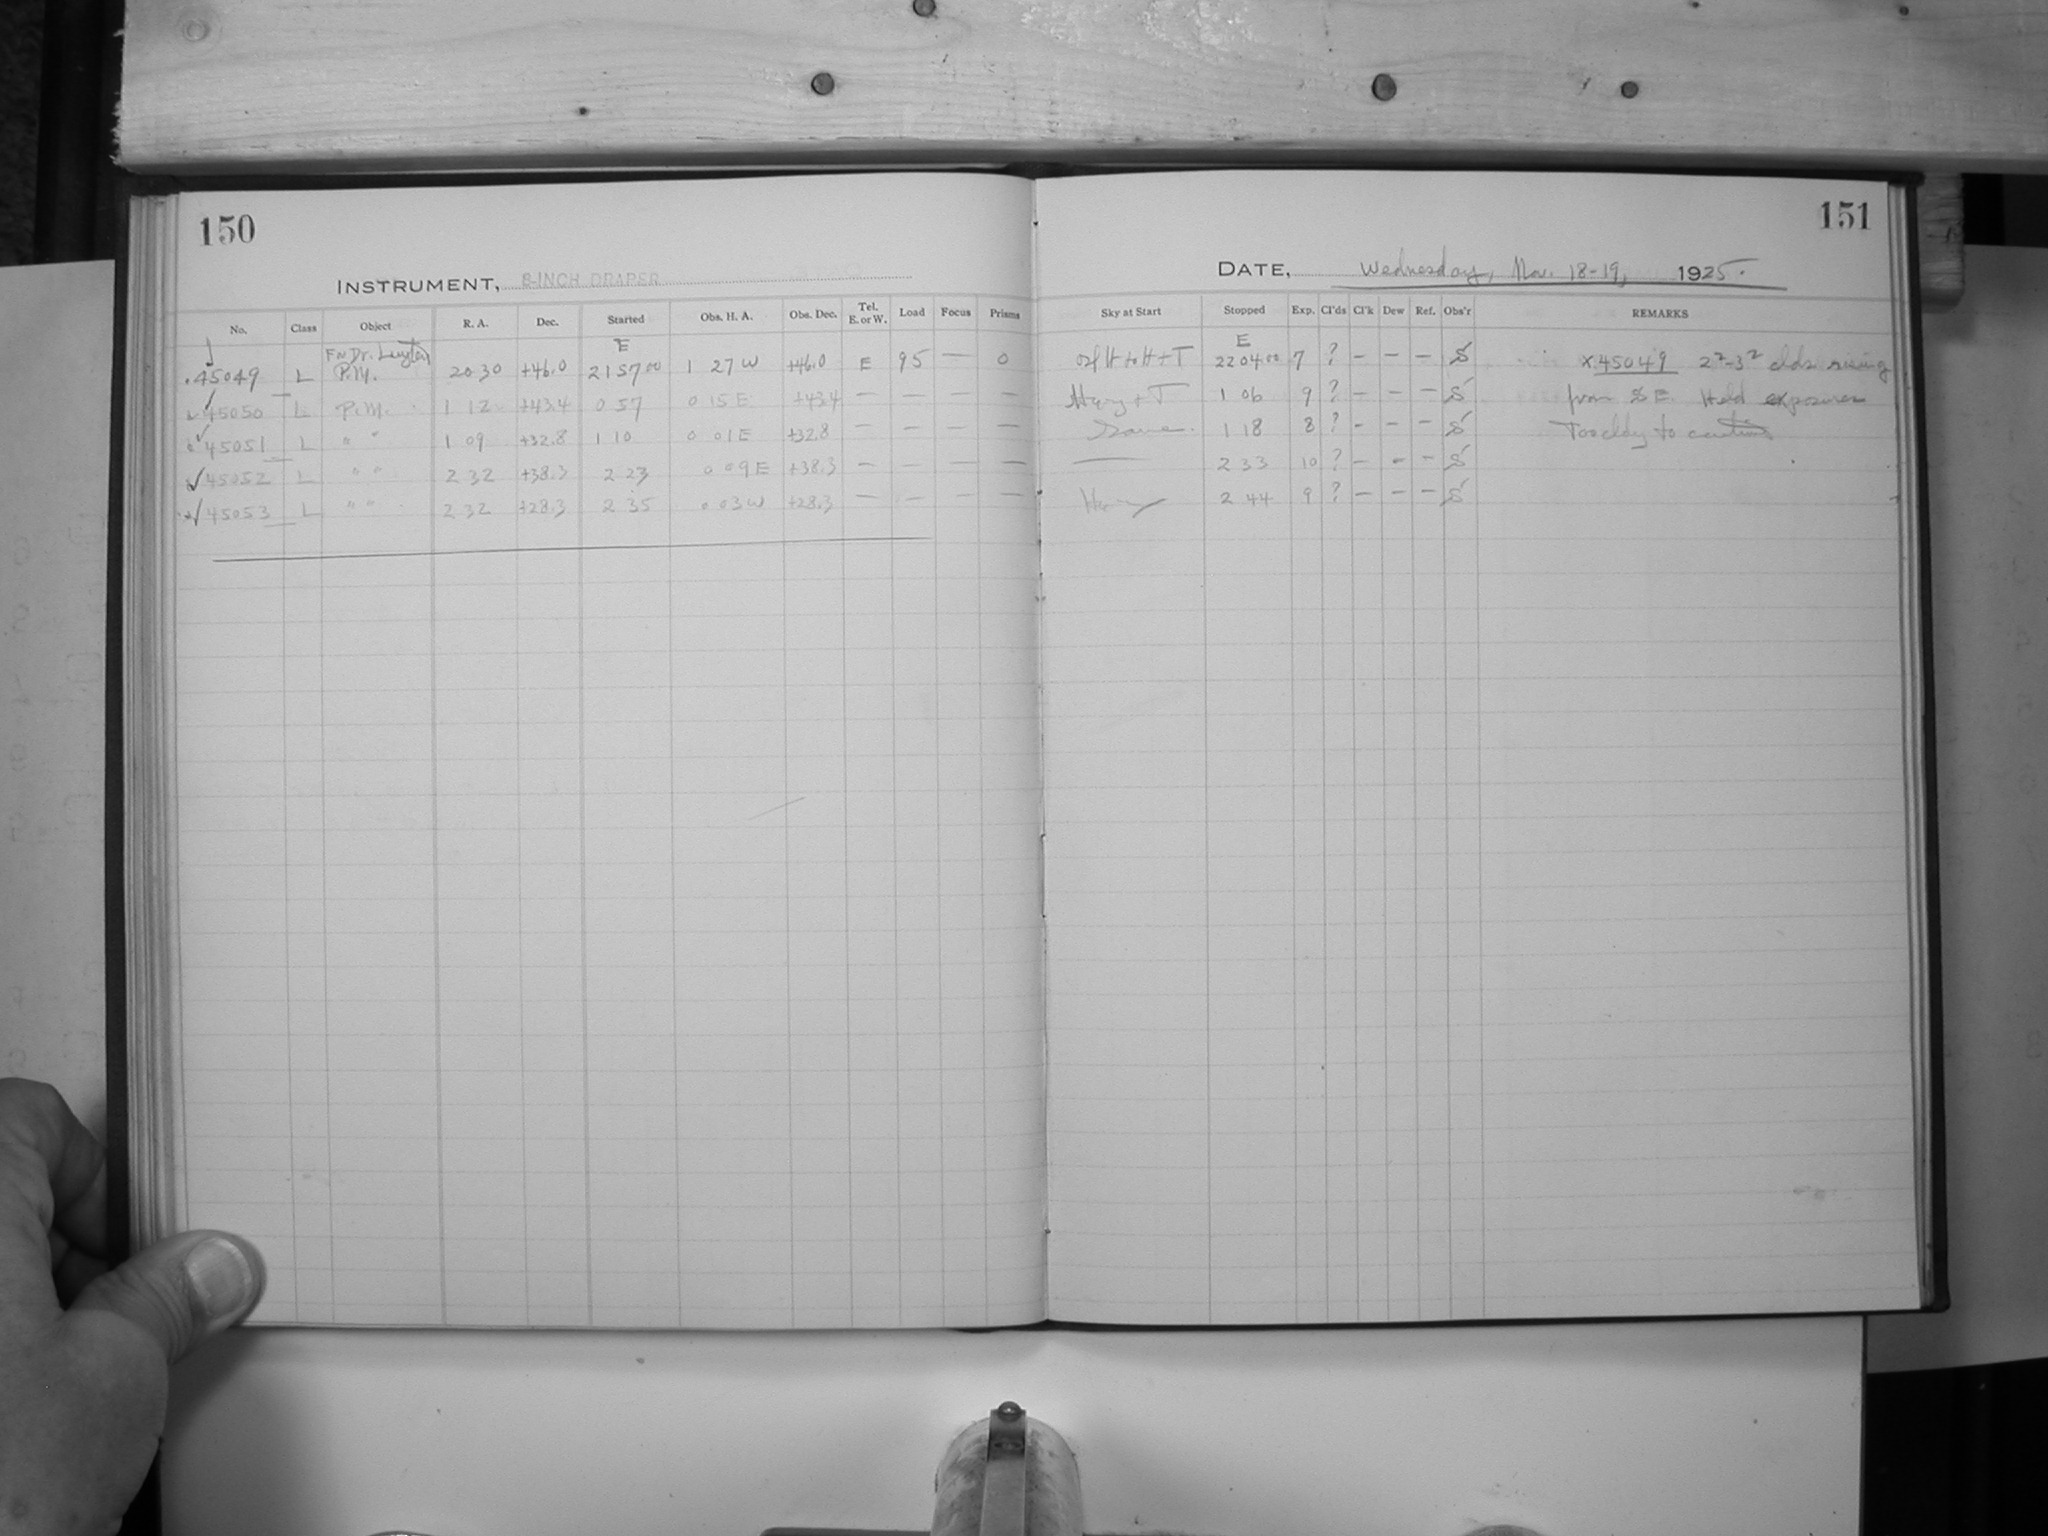 150
INSTRUMENT, 8-INCH DRAPER
No. Class Object R. A. Dec. Started Obs. H. A. Obs. Dec. Tel. E. or W. Load Focus Prisms
For Dr. Luyten E
45049 L P.M. 20 30 +46.0 21 57 00 1 27 W +46.0 E 95 — 0
45050 L P.M. 1 12 +43.4 0 57 0 15 E +43.4 — — — —
45051 L " " 1 09 +32.8 1 10 0 01 E +32.8 — — — —
45052 L " " 2 32 +38.3 2 23 0 09 E +38.3 — — — —
45053 L " " 2 32 +28.3 2 35 0 03 W +28.3 — — — —
151
DATE, Wednesday, Nov. 18-19, 1925.
Sky at Start Stopped Exp. Cl'ds Cl'k Dew Ref. Obs'r REMARKS
E
H+T 22 04 00 7 ? — — — S x45049 2²-3² clds rising
Hazy + T 1 06 9 ? — — — S from SE. Held exposures
Same. 1 18 8 ? — — — S Too cldy to continue
— 2 33 10 ? — — — S
Hazy 2 44 9 ? — — — S